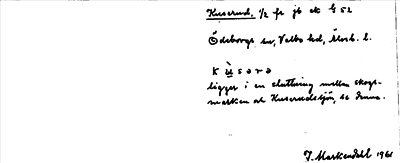 Kuserud, 1/2 fr jb ek G 52
Ödeborgs sn, Valbo hd, Älvsb. l.
k ù s ə r ə
ligger i en sluttning mellan skogs-
marken och Kuserudssjön, se denna.
J. Markendahl 1961